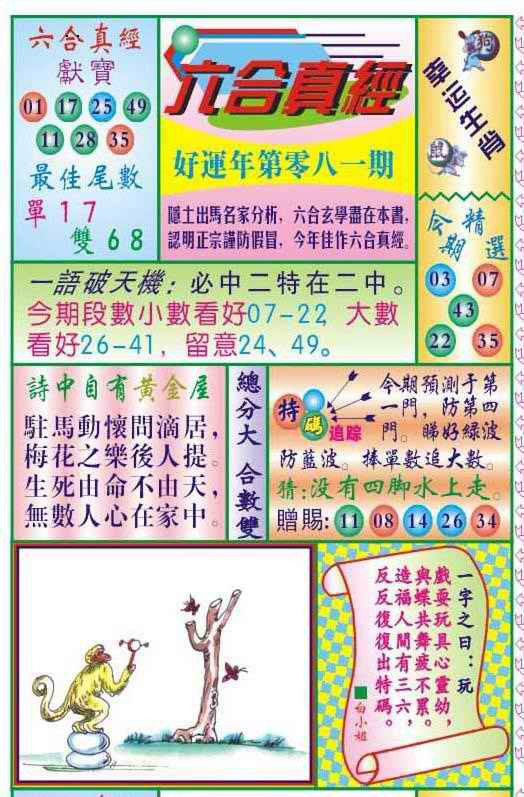 六合真經
獻寶
01 17 25 49
11 28 35
最佳尾數
單17
雙68
六合真經
好運年第零八一期
隱士出馬名家分析，六合玄學盡在本書，
認明正宗謹防假冒，今年佳作六合真經。
狗
幸运生肖
鼠
今期
精選
03 07
43
22 35
一語破天機：必中二特在二中。
今期段數小數看好07-22，大數
看好26-41，留意24、49。
詩中自有黃金屋
駐馬動懷問滴居，
梅花之樂後人提。
生死由命不由天，
無數人心在家中。
總分大 合數雙
特碼追踪
今期預測于第
一門，防第四
門。睇好綠波
防藍波。捧單數追大數。
猜:没有四脚水上走。
贈賜: 11 08 14 26 34
一字之曰：玩
戲耍玩具心靈幼，
與蝶共舞疲不累。
造福人間有三六，
反反復復出特碼。
■白小姐